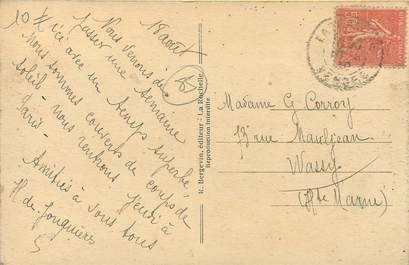 18 août
Nous venons de
passer une semaine
ici avec un temps superbe,
nous sommes couverts de coups de
soleil - nous rentrons jeudi à
Paris -
Amitiés à vous tous
H de Jonquières
87
R. Bergevin, éditeur - La Rochelle
Reproduction interdite
Madame G Corroy
rue
Wassy
(Hte Marne)